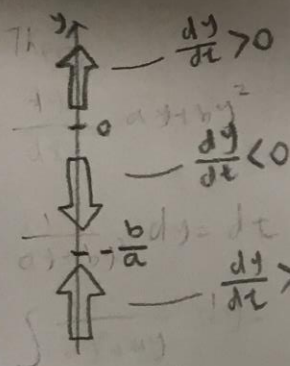 y
dy/dt > 0
0
dy/dt < 0
- b/a
dy/dt >